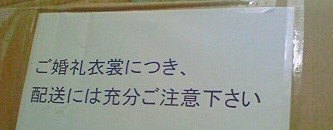 ご婚礼衣裳につき、
配送には充分ご注意下さい